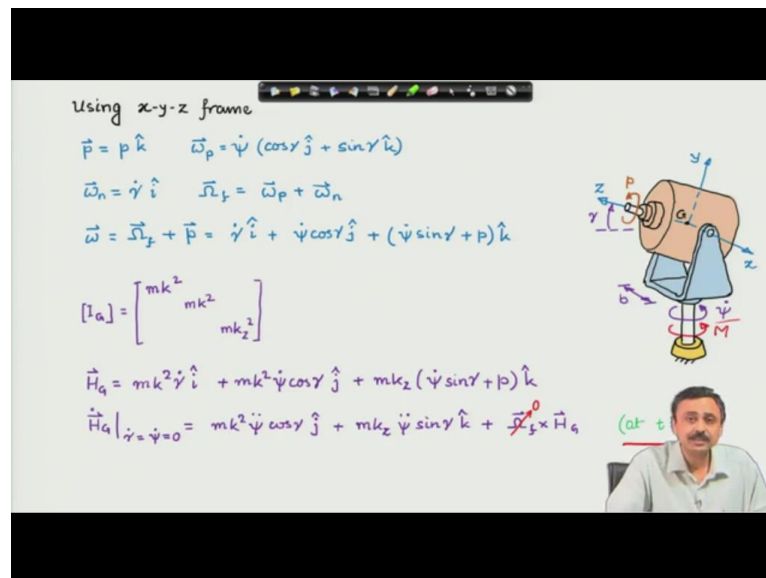 Using x-y-z frame
p⃗ = p k̂    ω⃗_p = ψ̇ (cosγ ĵ + sinγ k̂)
ω⃗_n = γ̇ î    Ω⃗_f = ω⃗_p + ω⃗_n
ω⃗ = Ω⃗_f + p⃗ = γ̇ î + ψ̇ cosγ ĵ + (ψ̇ sinγ + p) k̂
[I_G] = [mk² mk² mk_z²]
H⃗_G = mk² γ̇ î + mk² ψ̇ cosγ ĵ + mk_z (ψ̇ sinγ + p) k̂
H⃗̇_G |_γ̇=ψ̇=0 = mk² ψ̈ cosγ ĵ + mk_z ψ̈ sinγ k̂ + Ω⃗_f × H⃗_G
0
(at t
y
z
p
γ
G
x
b
ψ̇
M